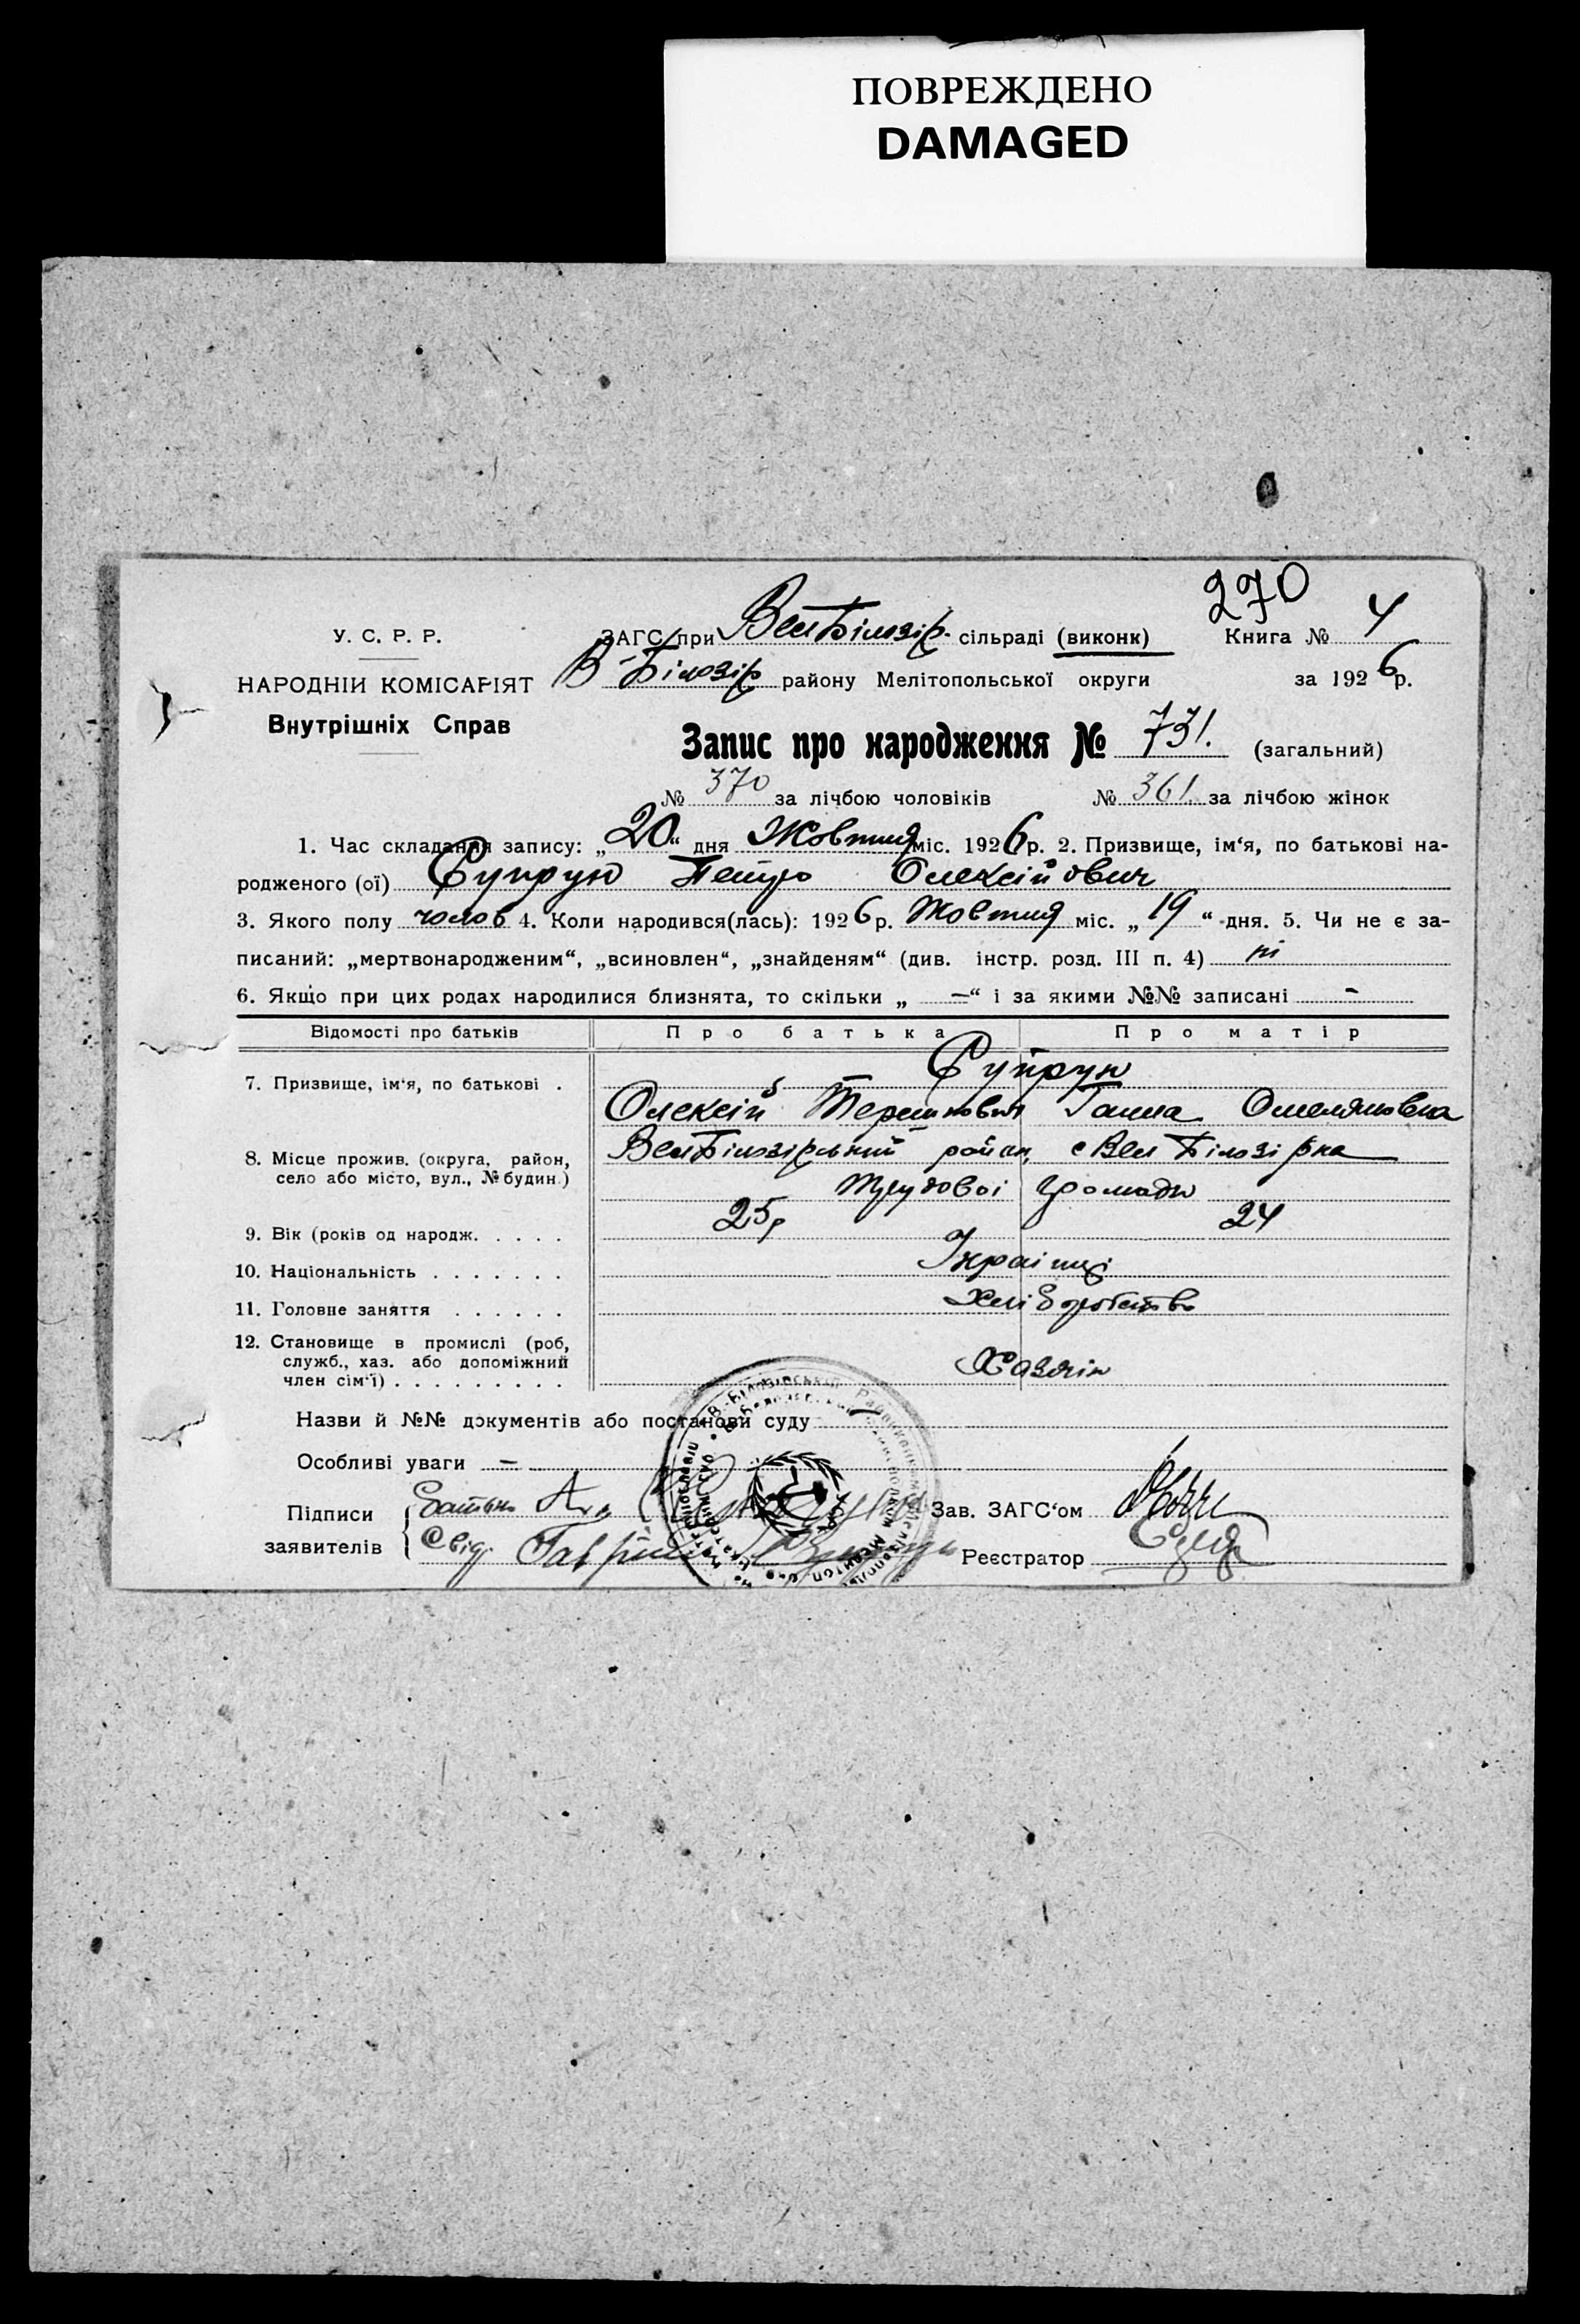 ПОВРЕЖДЕНО
DAMAGED
270
У. С. Р. Р.
ЗАГС при ВелБілозір. сільраді (виконк) Книга № 4
НАРОДНІЙ КОМІСАРІЯТ В-Білозір району Мелітопольської округи за 1926р.
Внутрішніх Справ
Запис про народження № 731. (загальний)
№ 370 за лічбою чоловіків № 361. за лічбою жінок
1. Час складання запису: „20“ дня Жовтня міс. 1926р. 2. Призвище, ім‘я, по батькові на-
родженого (ої) Супрун Петро Олексійович
3. Якого полу чолов 4. Коли народився(лась): 1926р. Жовтня міс. „19“ дня. 5. Чи не є за-
писаний: „мертвонародженим“, „всиновлен“, „знайденям“ (див. інстр. розд. III п. 4) ні
6. Якщо при цих родах народилися близнята, то скільки „—“ і за якими №№ записані -
Відомості про батьків Про батька Про матір
Супрун
7. Призвище, ім‘я, по батькові .
Олексій Терешкович Ганна Омеляновна
8. Місце прожив. (округа, район, ВелБілозірський район, с Вел Білозірка
село або місто, вул., № будин.) Трудової громади
9. Вік (років од народж. . . . . 25р 24
10. Національність . . . . . . . Українці
11. Головне заняття . . . . . . Хліборобство
12. Становище в промислі (роб,
служб., хаз. або допоміжний Хазяїн
член сім‘ї) . . . . . . . . .
Назви й №№ документів або постанови суду
Особливі уваги —
Підписи Батько Зав. ЗАГС‘ом
заявителів Свід. Реєстратор